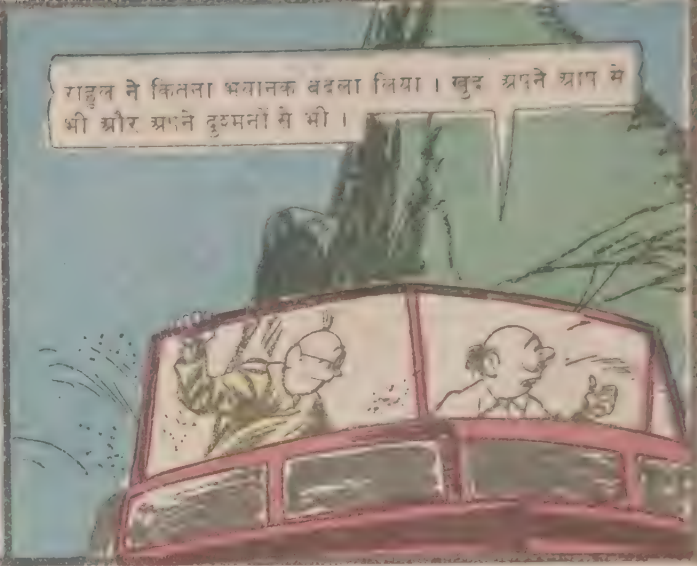 राहुल ने कितना भयानक बदला लिया । खुद अपने आप से
भी और अपने दुश्मनों से भी ।